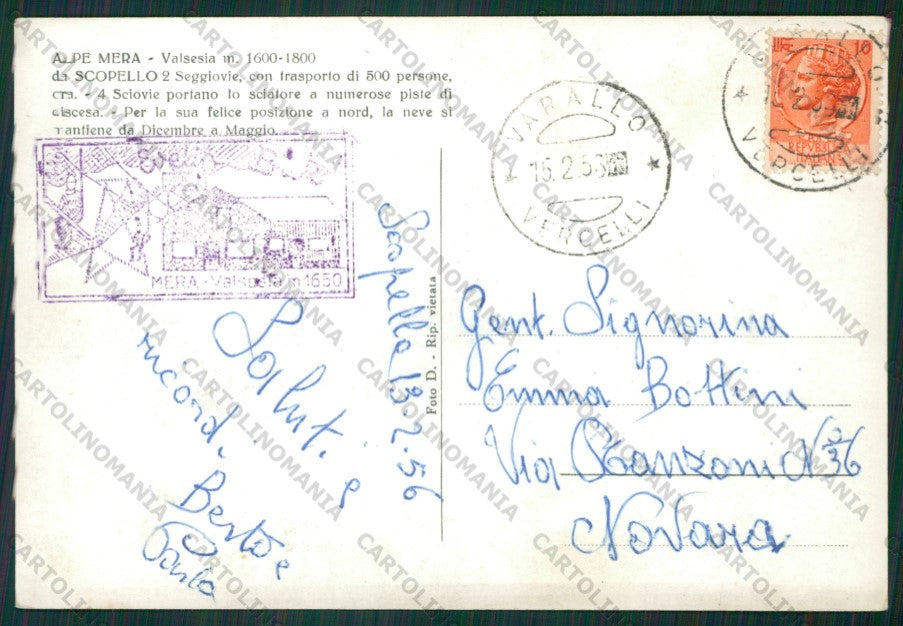 ALPE MERA - Valsesia m. 1600-1800
da SCOPELLO 2 Seggiovie, con trasporto di 500 persone,
ora. - 4 Sciovie portano lo sciatore a numerose piste di
discesa. - Per la sua felice posizione a nord, la neve si
mantiene da Dicembre a Maggio.
MERA - Valsesia m 1650
Scopello 13-2-56
Saluti e
ricordi
Berto e
Paola
Foto D. - Rip. vietata
VARALLO
VERCELLI
VERCELLI
REPUBBLICA
ITALIANA
Gent. Signorina
Emma Bottini
Via Manzoni N° 36
Novara
CARTOLINOMANIA